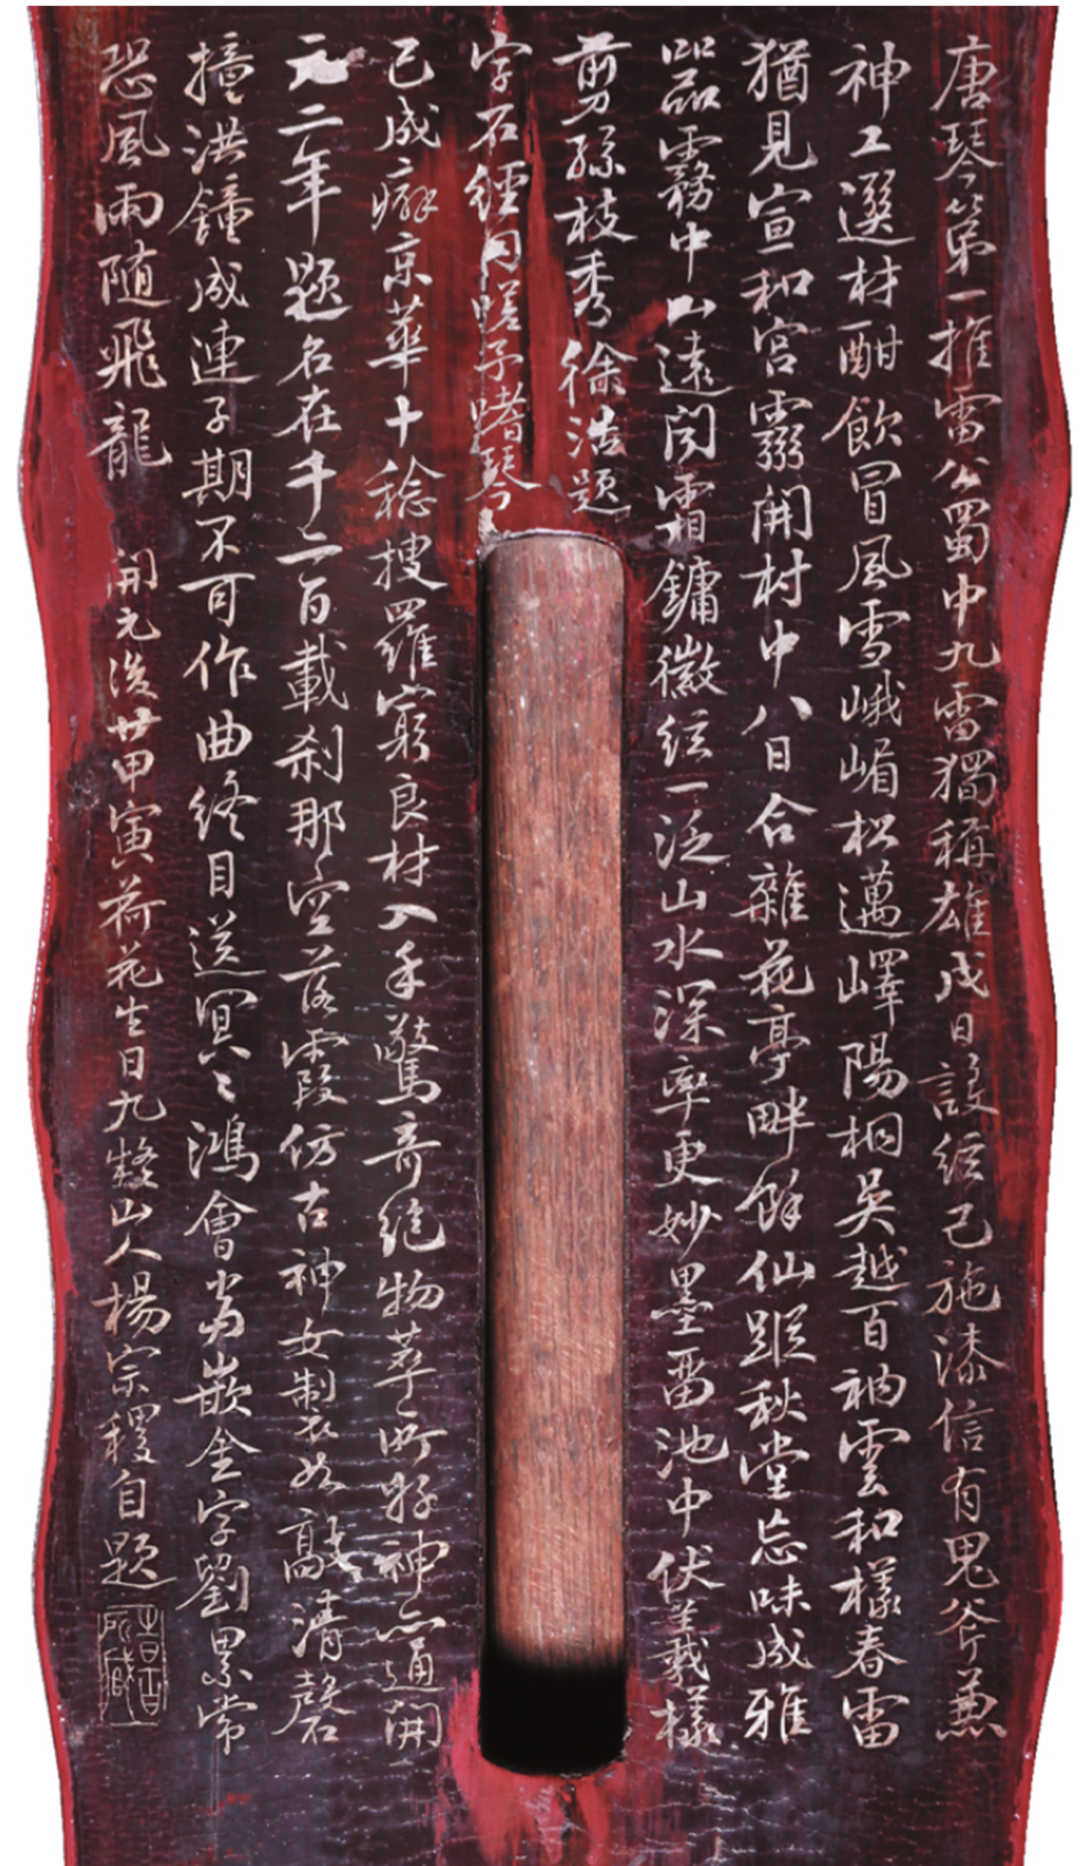 唐琴第一推雷公蜀中九雷獨稱雄戊日設絃己施漆信有鬼斧兼
神工選材酣飲冒風雪峨嵋松邁嶧陽桐吳越百衲雲和樣春雷
猶見宣和宮靈開村中八日合雜花亭畔餘仙蹤秋堂忘味成雅
器霧中山遠聞霜鏞徽絃一泛山水深率更妙墨留池中伏羲樣
剪孫枝秀徐浩題
字石經同嗟予嗜琴
已成癖京華十稔搜羅窮良材入手驚奇絕物萃所好神亦通開
元二年題名在千二百載剎那空落霞仿古神女製如敲清磬
撞洪鐘成連子期不可作曲終目送冥〻鴻會當嵌金字劉累常
恐風雨隨飛龍 開元後廿甲寅荷花生日九疑山人楊宗稷自題
時百所藏